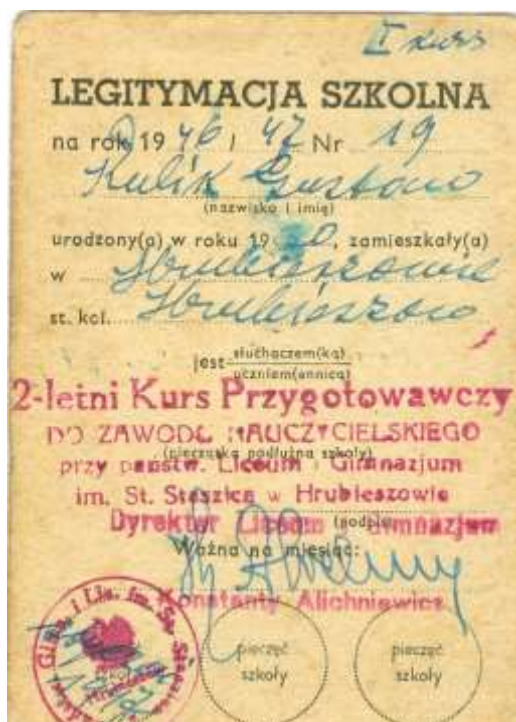 II kurs
LEGITYMACJA SZKOLNA
na rok 1946/47 Nr 19
Kulik Gustaw
(nazwisko i imię)
urodzony(a) w roku 19 0, zamieszkały(a)
w Hrubieszowie
st. kol. Hrubieszów
jest słuchaczem(ką)
uczniem(ennicą)
2-letni Kurs Przygotowawczy
DO ZAWODU NAUCZYCIELSKIEGO
(pieczątka podłużna szkoły)
przy państw. Liceum i Gimnazjum
im. St. Staszica w Hrubieszowie
Dyrektor Liceum i Gimnazjum
(podpis)
Ważna na miesiąc:
Konstanty Alichniewicz
pieczęć
szkoły
pieczęć
szkoły